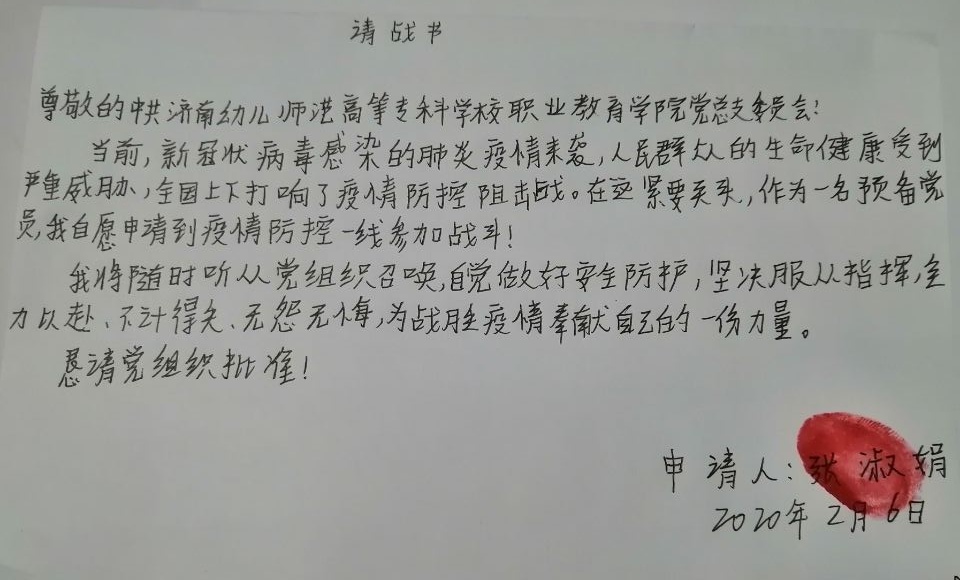 请战书
尊敬的中共济南幼儿师范高等专科学校职业教育学院党总支委员会：
当前，新冠状病毒感染的肺炎疫情来袭，人民群众的生命健康受到
严重威胁，全国上下打响了疫情防控阻击战。在这紧要关头，作为一名预备党
员，我自愿申请到疫情防控一线参加战斗！
我将随时听从党组织召唤，自觉做好安全防护，坚决服从指挥，全
力以赴、不计得失、无怨无悔，为战胜疫情奉献自己的一份力量。
恳请党组织批准！
申请人：张淑娟
2020年2月6日